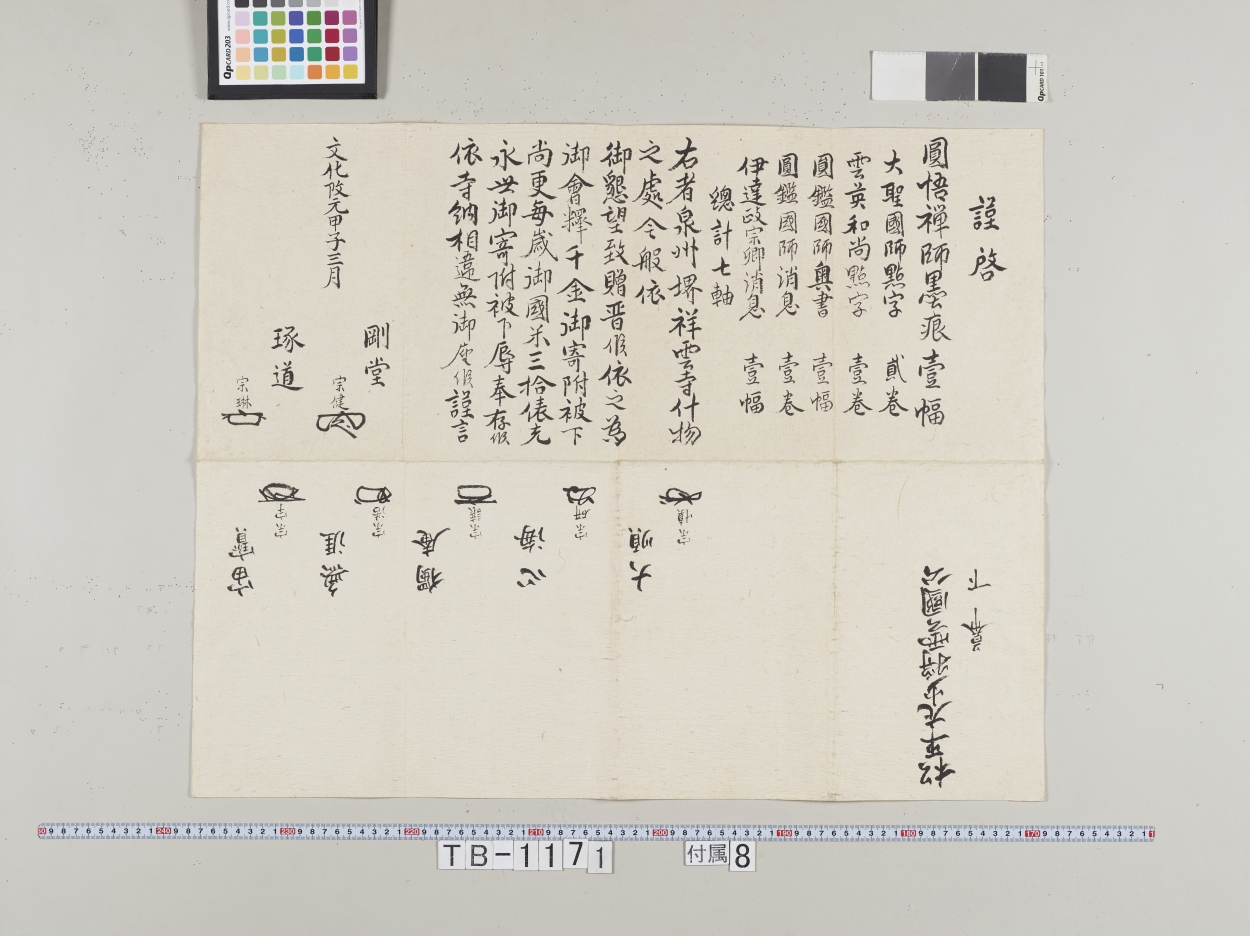 謹啓
圓悟禅師墨痕 壹幅
大聖國師點字 貳巻
雲英和尚點字 壹巻
圓鑑國師奥書 壹幅
圓鑑國師消息 壹巻
伊達政宗卿消息 壹幅
總計七軸
右者泉州堺祥雲寺什物
之處今般依
御懇望致贈晋候依之為
御會釋千金御寄附被下
尚更毎歳御國米三拾俵充
永世御寄附被下辱奉存候
依寺納相違無御座候謹言
文化改元甲子三月
剛堂
宗健
琢道
宗琳
大順
宗愼
心海
宗研
獨庵
宗譲
無涯
宗浩
宙寶
宗宇
松平九少将雲國公
幕下
TB-1171
付属8
QPCARD 203
QPCARD 101